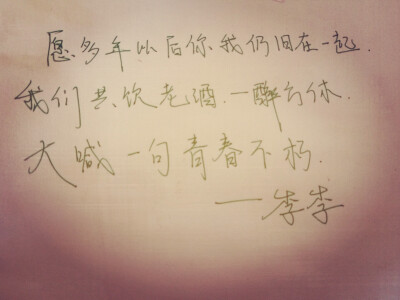 愿多年以后你我仍旧在一起.
我们共饮老酒.一醉方休.
大喊一句青春不朽.
——李李